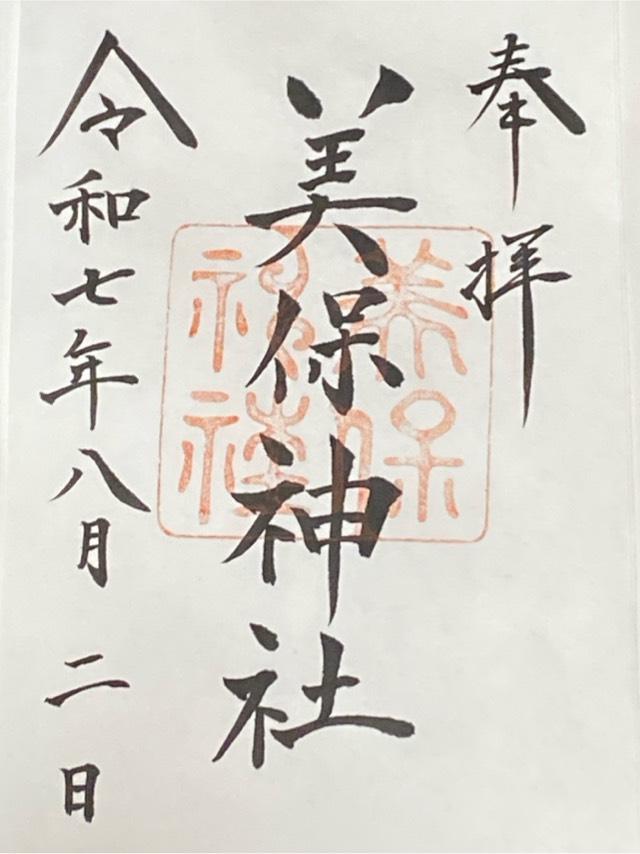 奉拝
美保神社
美保神社
令和七年八月二日